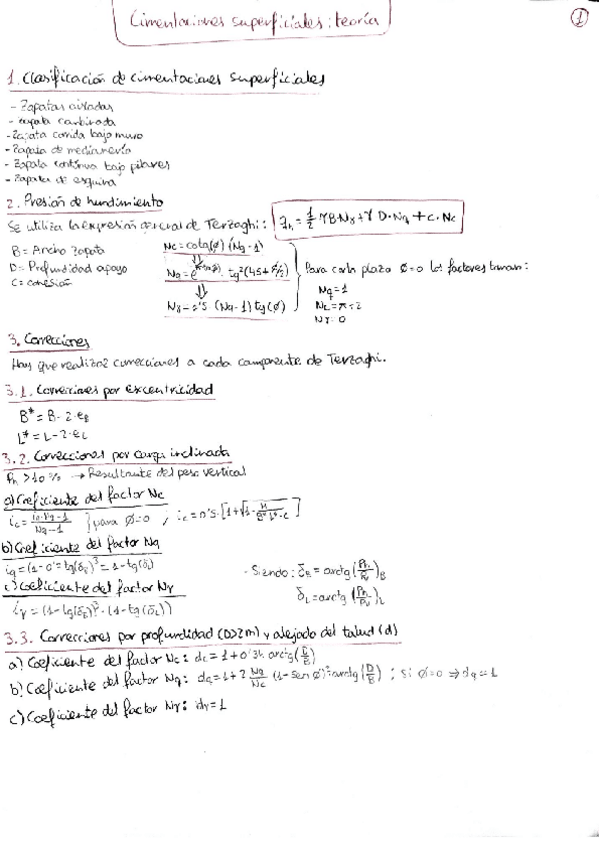 Cimentaciones superficiales: teoría
1
1. Clasificación de cimentaciones superficiales
- Zapatas aisladas
- Zapata combinada
- Zapata corrida bajo muro
- Zapata de medianería
- Zapata continua bajo pilares
- Zapata de esquina
2. Presión de hundimiento
Se utiliza la expresión general de Terzaghi: qh = 1/2 γ B·Nγ + γ D·Nq + c·Nc
B = Ancho zapata
D = Profundidad apoyo
C = cohesión
Nc = cotg(ø)(Nq-1)
⇓
Nq = e^(π·tg ø) · tg²(45+ø/2)
⇓
Nγ = 1'5 (Nq-1) tg(ø)
Para corto plazo ø=0 los factores toman:
Nq = 1
Nc = π+2
Nγ = 0
3. Correcciones
Hay que realizar correcciones a cada componente de Terzaghi.
3.1. Correcciones por excentricidad
B* = B - 2·eB
L* = L - 2·eL
3.2. Correcciones por carga inclinada
Ph > 10% → Resultante del peso vertical
a) Coeficiente del factor Nc
ic = (iq·Nq-1)/(Nq-1) } para ø=0, ic = 0'5·[1+√(1-H/(B*·L*·c))]
b) Coeficiente del factor Nq
iq = (1-0'7 tg(δB))³ = 1-tg(δL)
c) Coeficiente del factor Nγ
iγ = (1-tg(δB))³·(1-tg(δL))
- Siendo: δB = arctg(Ph/Pv)B
δL = arctg(Ph/Pv)L
3.3. Correcciones por profundidad (D>2m) y alejado del talud (d)
a) Coeficiente del factor Nc: dc = 1+0'34 arctg(D/B)
b) Coeficiente del factor Nq: dq = 1+2 Nq/Nc (1-sen ø)² arctg(D/B) ; si ø=0 ⇒ dq = 1
c) Coeficiente del factor Nγ: dγ = 1